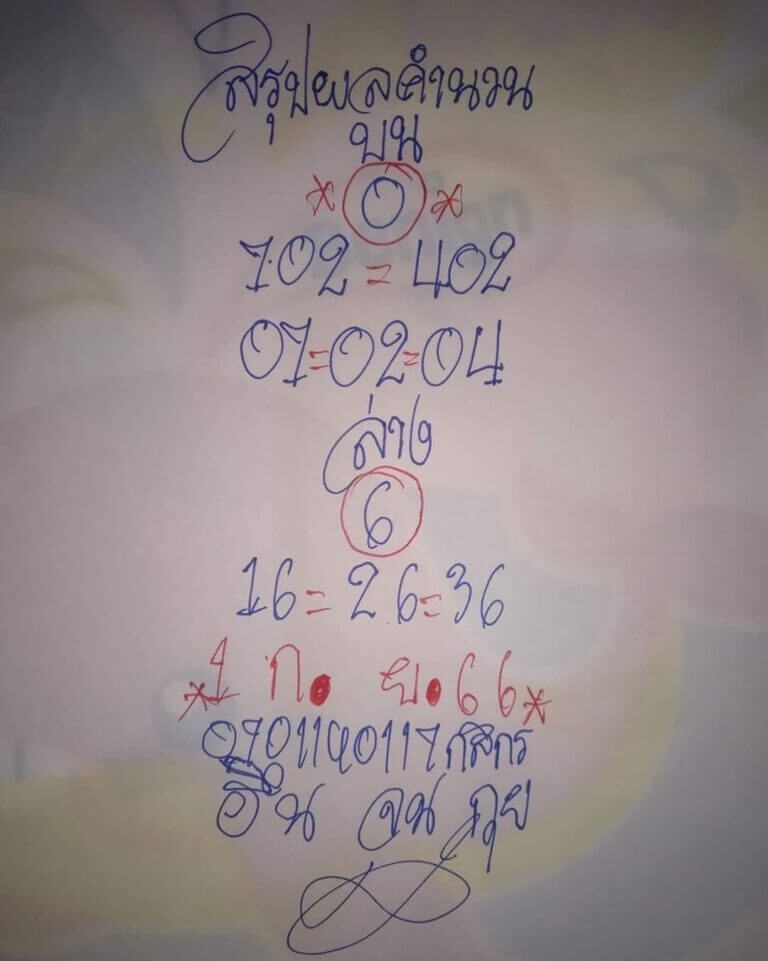 สรุปผลคำนวน
บน
* 0 *
702 = 402
07=02=04
ล่าง
6
16=26=36
*1 ก. ย. 66*
กสิกร